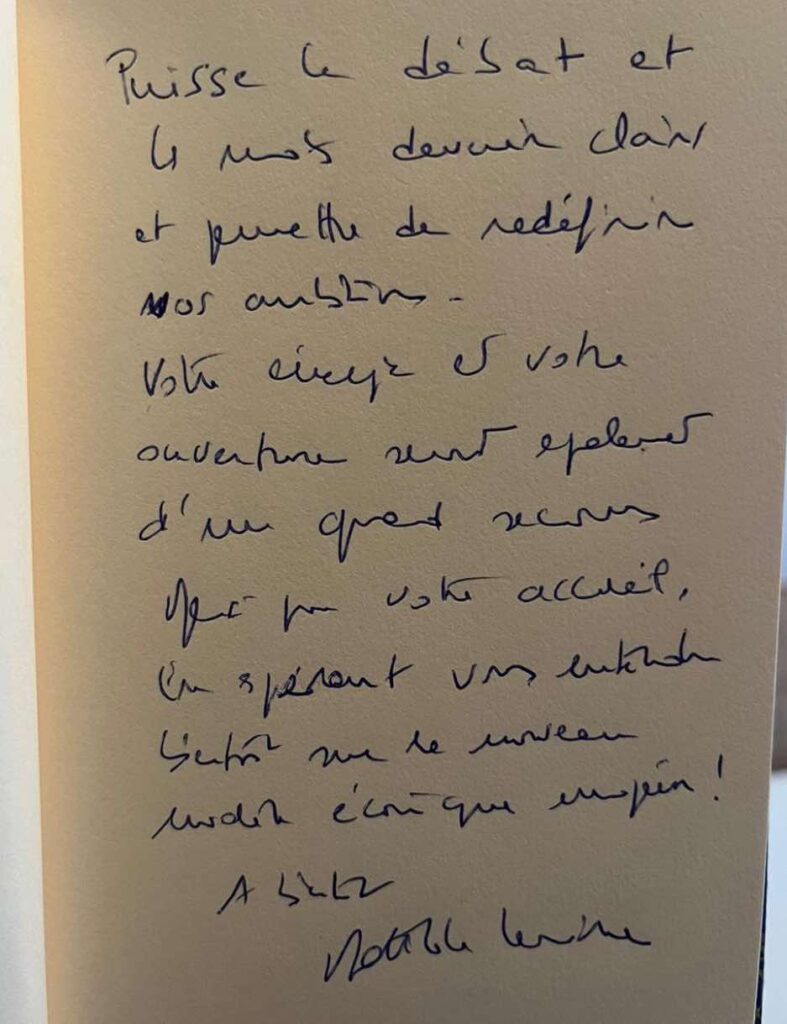 Puisse le débat et
les mots devenir clairs
et permettre de redéfinir
nos ambitions.
Votre énergie et votre
ouverture seront également
d'un grand secours
Merci pour votre accueil,
En espérant vous entendre
bientôt sur le nouveau
modèle économique européen !
A bientôt
Mathilde